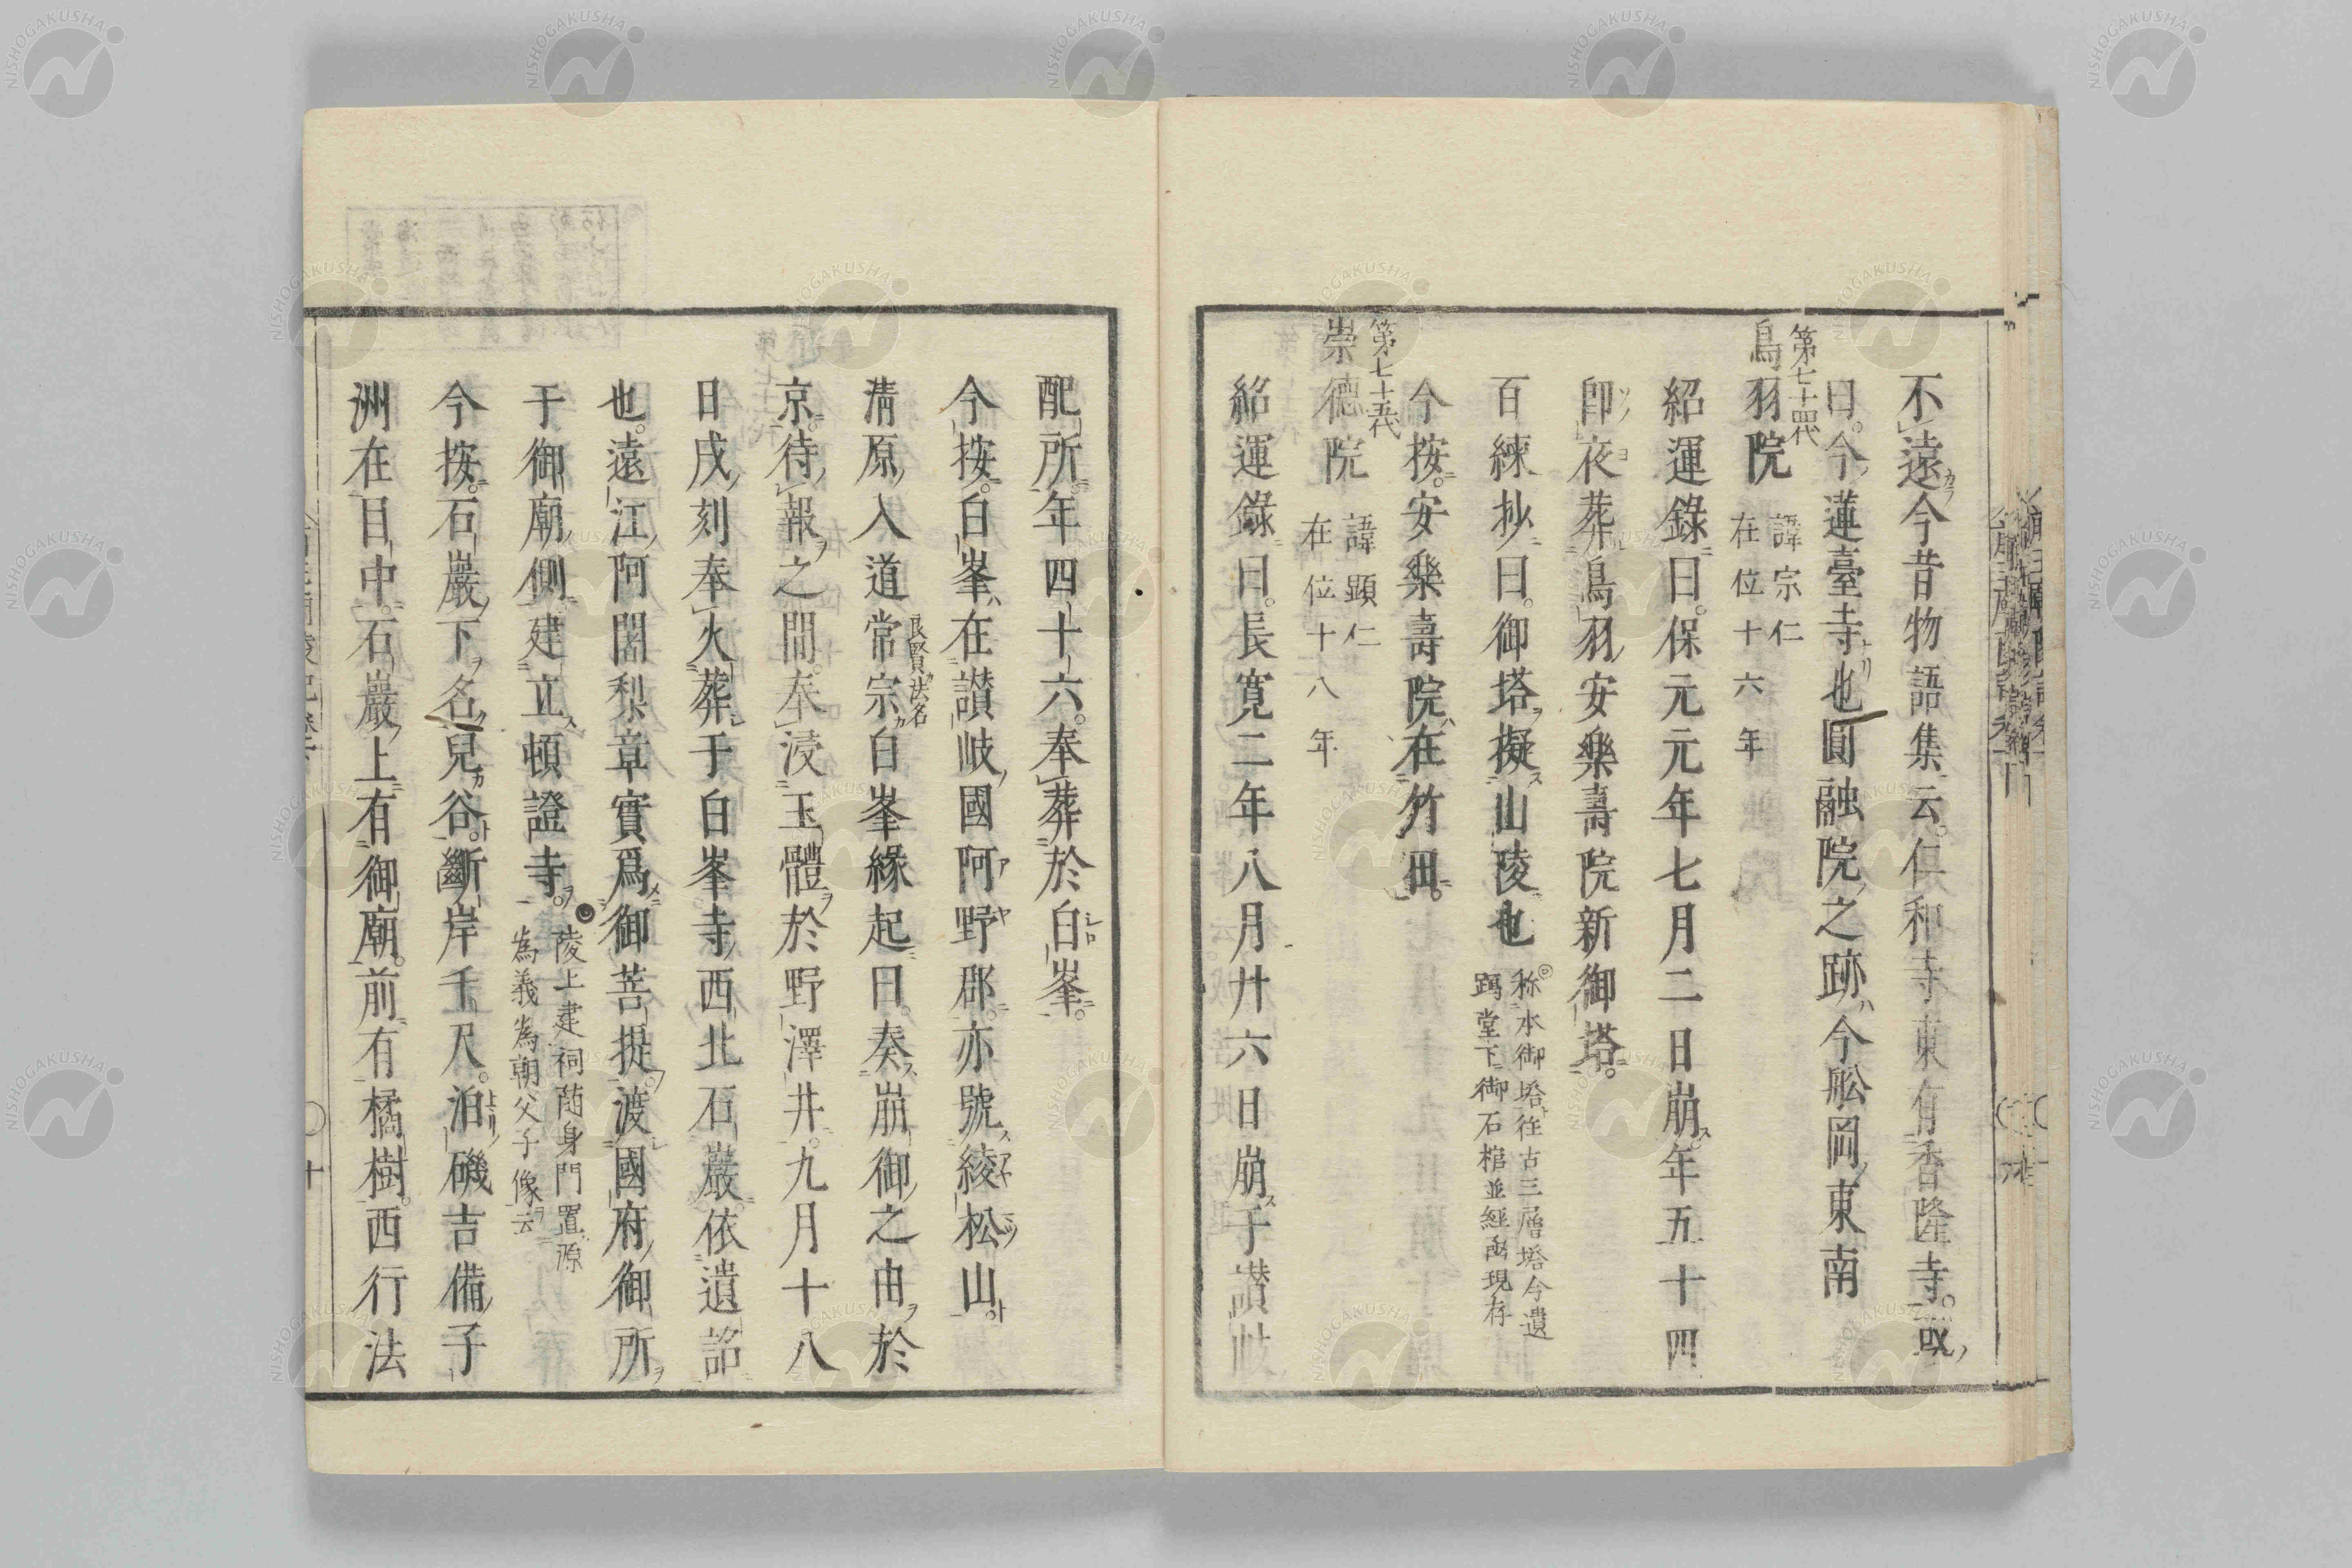 不遠今昔物語集云仁和寺東有香隆寺。或
曰。今蓮臺寺也圓融院之跡今舩岡東南
第七十四代
鳥羽院 諱宗仁
在位十六年
紹運錄曰。保元元年七月二日崩年五十四
卽夜葬鳥羽安樂壽院新御塔。
百練抄曰。御塔擬山陵也
称本御塔往古三層塔今遺
蹲堂下御石棺並經函現存
今按。安樂壽院在竹田。
第七十五代
崇德院 諱顯仁
在位十八年
紹運錄曰。長寛二年八月廿六日崩于讃岐
配所。年四十六。奉葬於白峯。
今按。白峯在讃岐國阿野郡。亦號綾松山。
淸原入道常宗
良賢法名
白峯緣起曰。奏崩御之由於
京。待報之間。奉浸玉體於野澤井。九月十八
日戌刻奉火葬于白峯寺西北石巖。依遺詔
也。遠江阿闍梨章實爲御菩提。渡國府御所
于御廟側建立頓證寺。
陵上建祠随身門置源
為義為朝父子像云
今按。石巖下名兒谷。斷岸千尺。泊磯吉備子
洲在目中。石巖上有御廟。前有橘樹。西行法
NISHOGAKUSHA